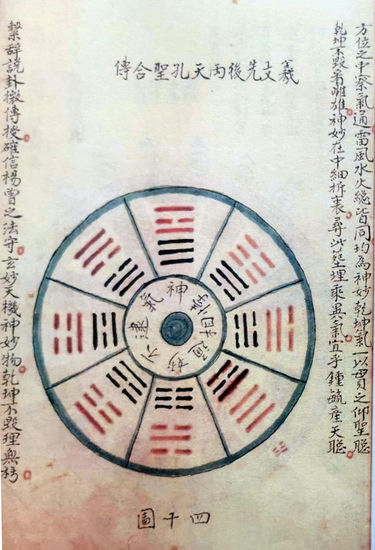 方位之中察氣通雷風水火總皆同均為神妙乾坤氣一以貫之仰聖聰
乾坤不毀着雌雄神妙在中細析衷尋此葬埋乘氣宜乎鍾毓產天聰
羲文先後兩天孔聖合傳
神
通
妙
不
氣
四十圖
繫辭說卦微傳授確信楊曾之法守玄妙天機神妙物乾坤不毀理無朽